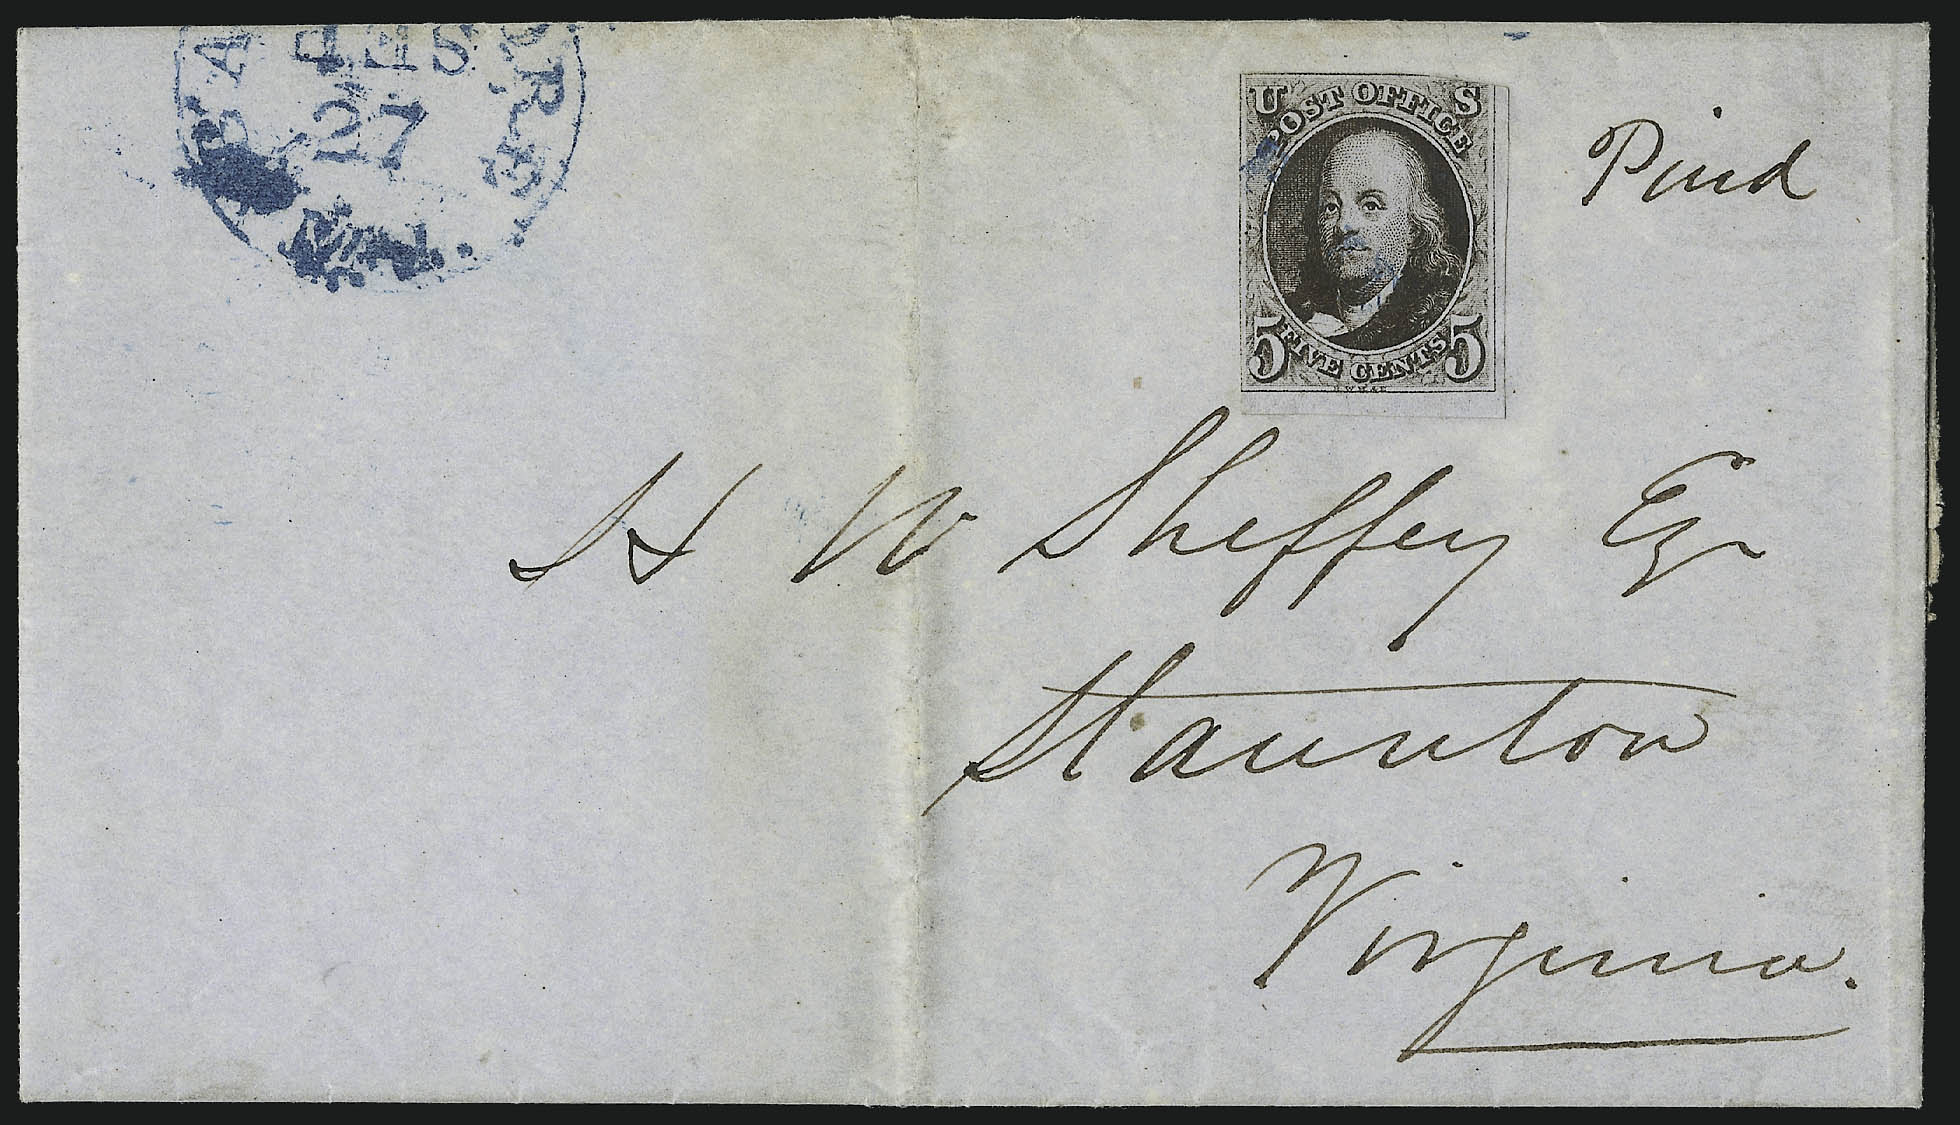 U S
POST OFFICE
5 FIVE CENTS 5
R.W.H.&E.
Paid
H W Sheffey Esqr
Staunton
Virginia.
27
Md.